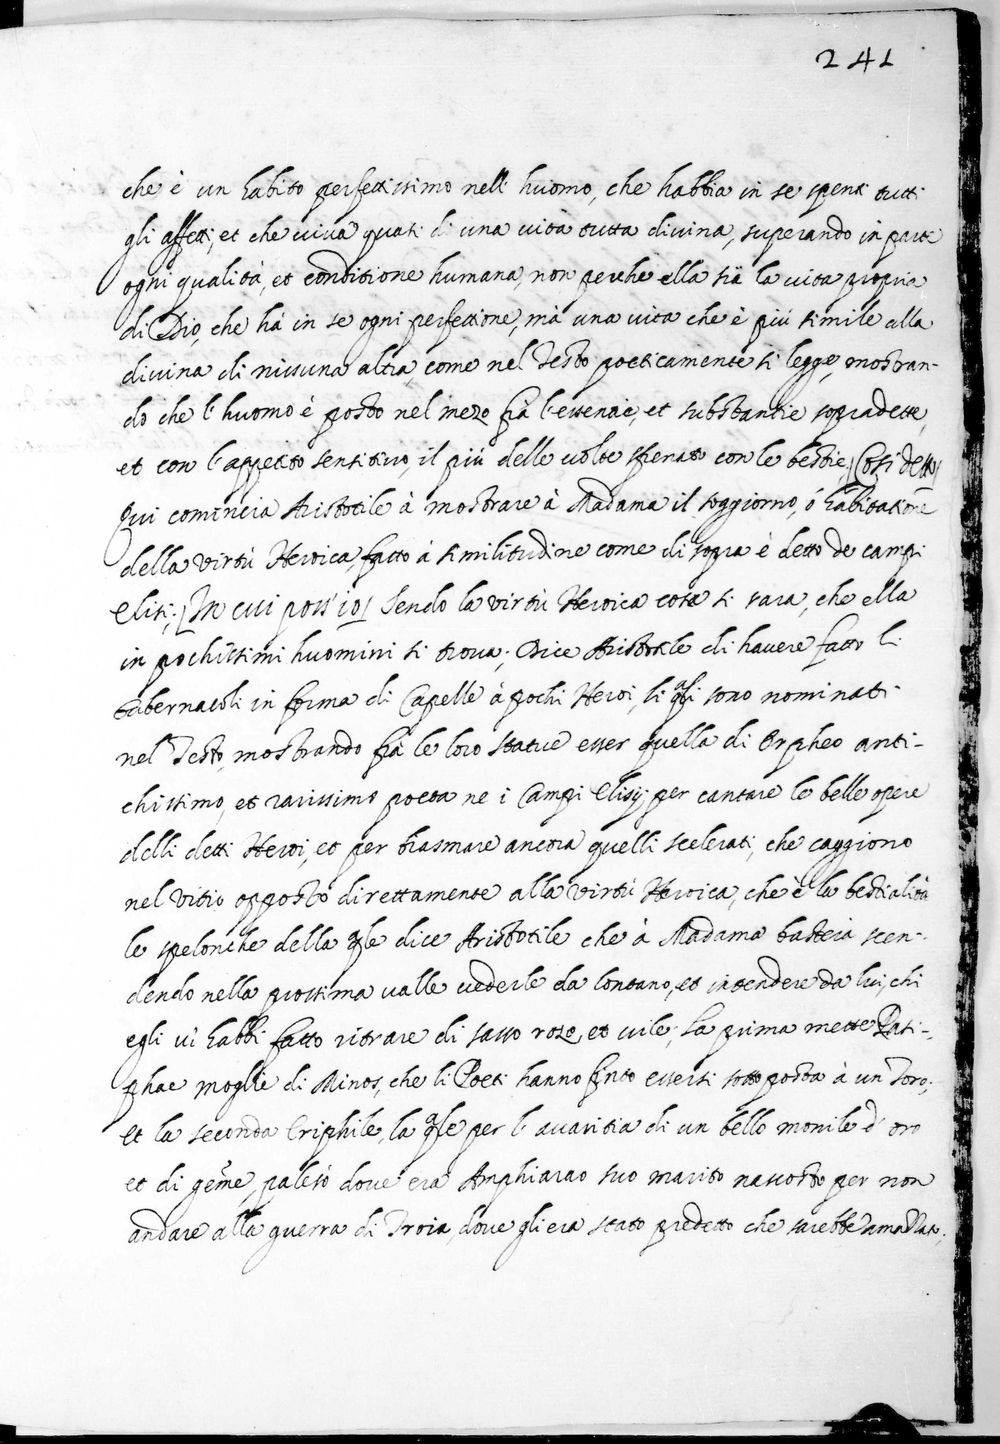 241
che è un habito perfettissimo nell huomo, che habbia in se spenti tutti
gli affetti, et che viva quasi di una vita tutta divina, superando in parte
ogni qualità, et conditione humana, non perche ella sia la vita propria
di Dio, che há in se ogni perfettione, mà una vita che è piú simile alla
divina di nissuna altra, come nel Testo poeticamente si legge, mostran-
do che l'huomo è posto nel mezo frà l'essentie, et substantie sopradette,
et con l'appetito sensitivo, il piú delle volte sfrenato con le bestie, [Cosi detto]
qui comincia Aristotile à mostrare à Madama il soggiorno, ó habitatione
della virtù Heroica, fatto á similitudine come di sopra è detto de campi
elisi; [In cui poss'io] sendo la virtù Heroica cosa si rara, che ella
in pochissimi huomini si trova; Dice Aristotile di havere fatto li
tabernacoli in forma di Capelle à pochi Heroi, li qli sono nominati
nel Testo, mostrando frà le loro statue esser quella di Orpheo anti-
chissimo, et rarissimo poeta ne i Campi elisij per cantare le belle opere
delli detti Heroi, et per biasmare ancora quelli scelerati, che caggiono
nel vitio opposto direttamente alla virtù Heroica, che è la bestialità
le spelonche della qle dice Aristotile che à Madama bastera scen-
dendo nella prossima valle vederle da lontano, et intendere da lui, chi
egli vi habbi fatto ritrare di sasso rozo, et vile; La prima mette Pasi-
phae moglie di Minos, che li Poeti hanno finto essersi sottoposta à un Toro;
et la seconda Eriphile, la qle per l'avaritia di un bello monile d'oro
et di gēme, palesó dove era Amphiarao suo marito nascosto per non
andare alla guerra di Troia, dove gli era stato predetto che sarebbe amazzato;